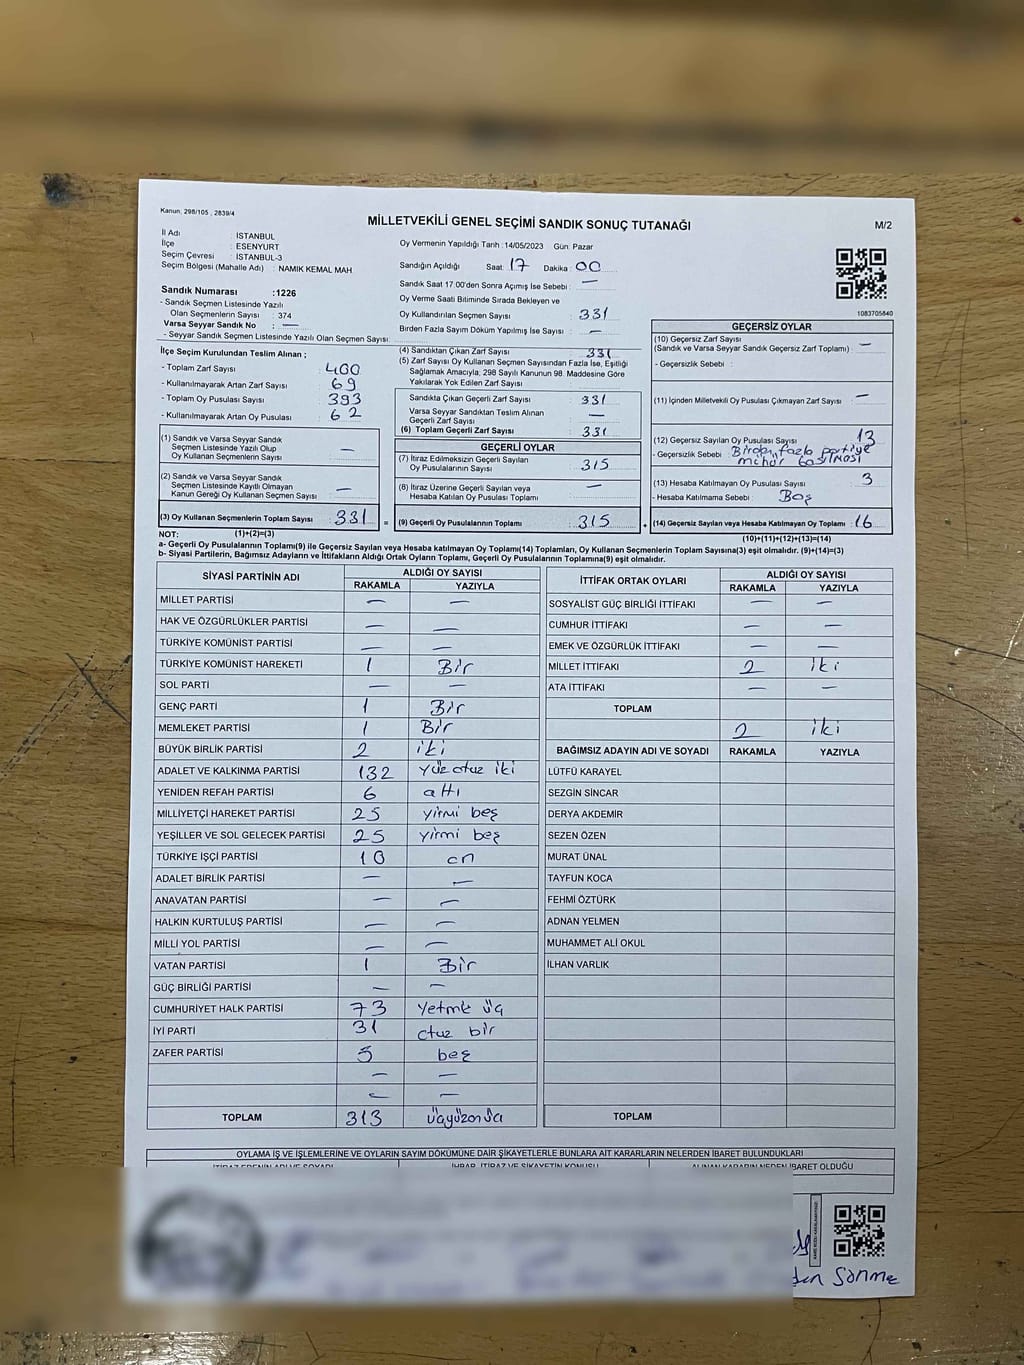 Kanun, 298/105 , 2839/4
MİLLETVEKİLİ GENEL SEÇİMİ SANDIK SONUÇ TUTANAĞI
M/2
İl Adı : İSTANBUL
İlçe : ESENYURT
Seçim Çevresi : İSTANBUL-3
Seçim Bölgesi (Mahalle Adı) : NAMIK KEMAL MAH
Oy Vermenin Yapıldığı Tarih :14/05/2023 Gün: Pazar
Sandığın Açıldığı Saat: 17 Dakika: 00
Sandık Saat 17:00'den Sonra Açımış İse Sebebi : —
Oy Verme Saati Bitiminde Sırada Bekleyen ve
Oy Kullandırılan Seçmen Sayısı : 331
Birden Fazla Sayım Döküm Yapılmış İse Sayısı : —
Sandık Numarası :1226
- Sandık Seçmen Listesinde Yazılı
Olan Seçmenlerin Sayısı : 374
Varsa Seyyar Sandık No : —
- Seyyar Sandık Seçmen Listesinde Yazılı Olan Seçmen Sayısı:
1083705840
İlçe Seçim Kurulundan Teslim Alınan ;
- Toplam Zarf Sayısı : 400
- Kullanılmayarak Artan Zarf Sayısı : 69
- Toplam Oy Pusulası Sayısı : 393
- Kullanılmayarak Artan Oy Pusulası : 62
(1) Sandık ve Varsa Seyyar Sandık
Seçmen Listesinde Yazılı Olup
Oy Kullanan Seçmenlerin Sayısı : —
(2) Sandık ve Varsa Seyyar Sandık
Seçmen Listesinde Kayıtlı Olmayan
Kanun Gereği Oy Kullanan Seçmen Sayısı : —
(3) Oy Kullanan Seçmenlerin Toplam Sayısı : 331
(1)+(2)=(3)
(4) Sandıktan Çıkan Zarf Sayısı : 331
(5) Zarf Sayısı Oy Kullanan Seçmen Sayısından Fazla İse, Eşitliği
Sağlamak Amacıyla, 298 Sayılı Kanunun 98. Maddesine Göre
Yakılarak Yok Edilen Zarf Sayısı :
Sandıkta Çıkan Geçerli Zarf Sayısı : 331
Varsa Seyyar Sandıktan Teslim Alınan
Geçerli Zarf Sayısı : —
(6) Toplam Geçerli Zarf Sayısı : 331
GEÇERLİ OYLAR
(7) İtiraz Edilmeksizin Geçerli Sayılan
Oy Pusulalarının Sayısı : 315
(8) İtiraz Üzerine Geçerli Sayılan veya
Hesaba Katılan Oy Pusulası Toplamı : —
= (9) Geçerli Oy Pusulalarının Toplamı : 315
GEÇERSİZ OYLAR
(10) Geçersiz Zarf Sayısı
(Sandık ve Varsa Seyyar Sandık Geçersiz Zarf Toplamı) : —
- Geçersizlik Sebebi :
(11) İçinden Milletvekili Oy Pusulası Çıkmayan Zarf Sayısı : —
(12) Geçersiz Sayılan Oy Pusulası Sayısı : 13
- Geçersizlik Sebebi : Birden fazla partiye
mühür basılması
(13) Hesaba Katılmayan Oy Pusulası Sayısı : 3
- Hesaba Katılmama Sebebi : Boş
+ (14) Geçersiz Sayılan veya Hesaba Katılmayan Oy Toplamı : 16
(10)+(11)+(12)+(13)=(14)
NOT:
a- Geçerli Oy Pusulalarının Toplamı(9) ile Geçersiz Sayılan veya Hesaba katılmayan Oy Toplamı(14) Toplamları, Oy Kullanan Seçmenlerin Toplam Sayısına(3) eşit olmalıdır. (9)+(14)=(3)
b- Siyasi Partilerin, Bağımsız Adayların ve İttifakların Aldığı Ortak Oyların Toplamı, Geçerli Oy Pusulalarının Toplamına(9) eşit olmalıdır.
SİYASİ PARTİNİN ADI ALDIĞI OY SAYISI
RAKAMLA YAZIYLA
MİLLET PARTİSİ — —
HAK VE ÖZGÜRLÜKLER PARTİSİ — —
TÜRKİYE KOMÜNİST PARTİSİ — —
TÜRKİYE KOMÜNİST HAREKETİ 1 Bir
SOL PARTİ — —
GENÇ PARTİ 1 Bir
MEMLEKET PARTİSİ 1 Bir
BÜYÜK BİRLİK PARTİSİ 2 iki
ADALET VE KALKINMA PARTİSİ 132 yüz otuz iki
YENİDEN REFAH PARTİSİ 6 altı
MİLLİYETÇİ HAREKET PARTİSİ 25 yirmi beş
YEŞİLLER VE SOL GELECEK PARTİSİ 25 yirmi beş
TÜRKİYE İŞÇİ PARTİSİ 10 on
ADALET BİRLİK PARTİSİ — —
ANAVATAN PARTİSİ — —
HALKIN KURTULUŞ PARTİSİ — —
MİLLİ YOL PARTİSİ — —
VATAN PARTİSİ 1 Bir
GÜÇ BİRLİĞİ PARTİSİ — —
CUMHURİYET HALK PARTİSİ 73 yetmiş üç
İYİ PARTİ 31 otuz bir
ZAFER PARTİSİ 5 beş
— —
— —
TOPLAM 313 üçyüzonüç
İTTİFAK ORTAK OYLARI ALDIĞI OY SAYISI
RAKAMLA YAZIYLA
SOSYALİST GÜÇ BİRLİĞİ İTTİFAKI — —
CUMHUR İTTİFAKI — —
EMEK VE ÖZGÜRLÜK İTTİFAKI — —
MİLLET İTTİFAKI 2 iki
ATA İTTİFAKI — —
TOPLAM
2 iki
BAĞIMSIZ ADAYIN ADI VE SOYADI RAKAMLA YAZIYLA
LÜTFÜ KARAYEL
SEZGİN SİNCAR
DERYA AKDEMİR
SEZEN ÖZEN
MURAT ÜNAL
TAYFUN KOCA
FEHMİ ÖZTÜRK
ADNAN YELMEN
MUHAMMET ALİ OKUL
İLHAN VARLIK
TOPLAM
OYLAMA İŞ VE İŞLEMLERİNE VE OYLARIN SAYIM DÖKÜMÜNE DAİR ŞİKAYETLERLE BUNLARA AİT KARARLARIN NELERDEN İBARET BULUNDUKLARI
İTİRAZ EDENİN ADI VE SOYADI İHBAR, İTİRAZ VE ŞİKAYETİN KONUSU ALINAN KARARIN NEDEN İBARET OLDUĞU
den Sönme